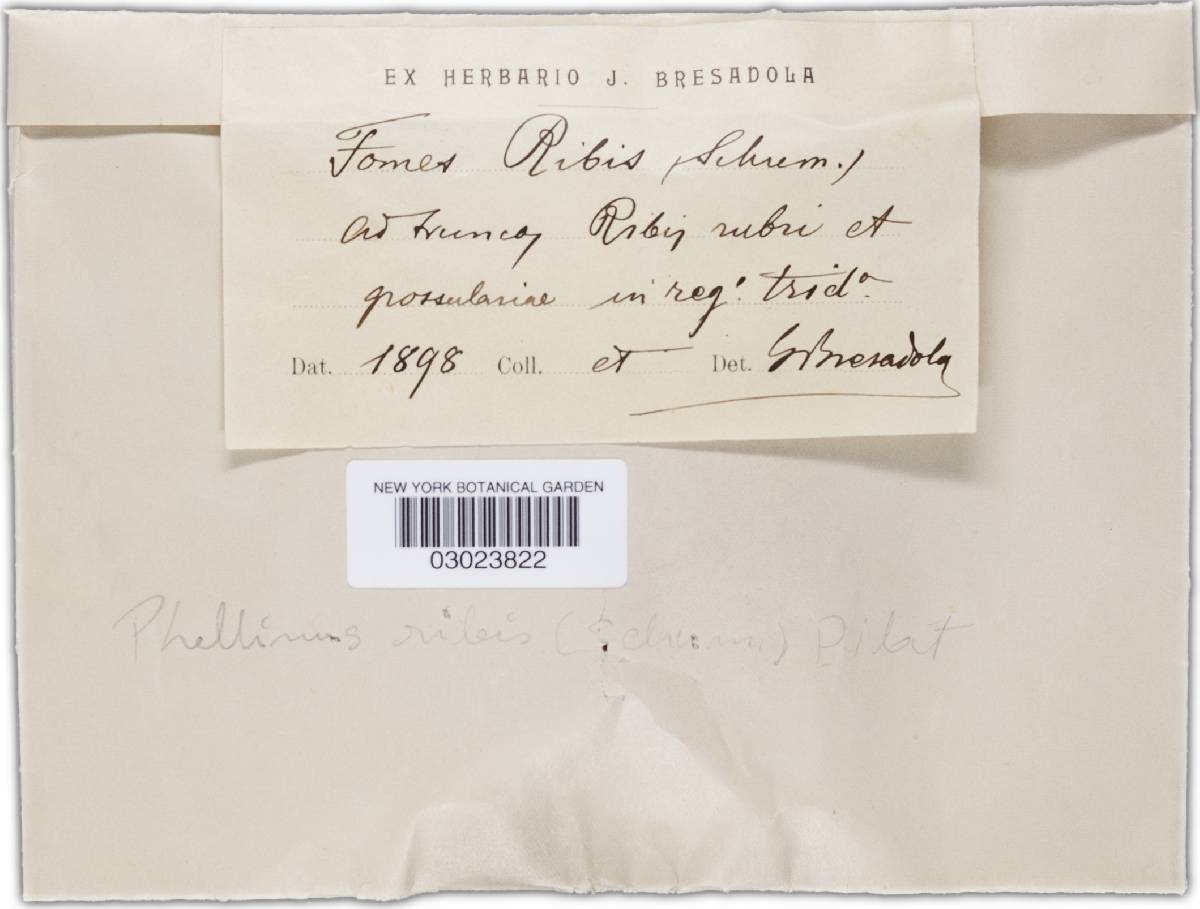 EX HERBARIO J. BRESADOLA
Fomes Ribis (Schum.)
ad truncos Ribis rubri et
grossulariae in reg.e trid.a
Dat. 1898 Coll. et Det. GBresadola
NEW YORK BOTANICAL GARDEN
03023822
Phellinus ribis (Schum) Pilat